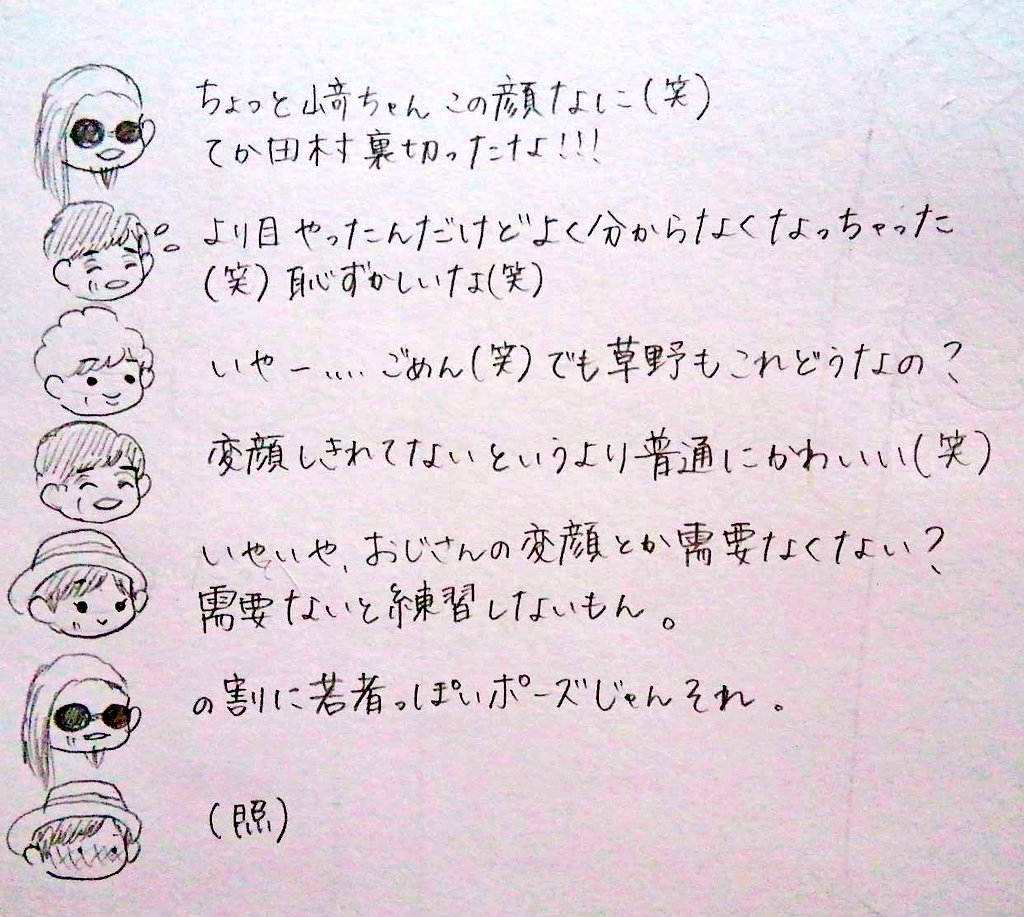 ちょっと﨑ちゃんこの顔なしに(笑)
てか田村裏切ったな!!!
より目やったんだけどよく分からなくなっちゃった
(笑)恥ずかしいな(笑)
いやー....ごめん(笑)でも草野もこれどうなの?
変顔しきれてないというより普通にかわいい(笑)
いやいや、おじさんの変顔とか需要なくない?
需要ないと練習しないもん。
の割に若者っぽいポーズじゃんそれ。
(照)